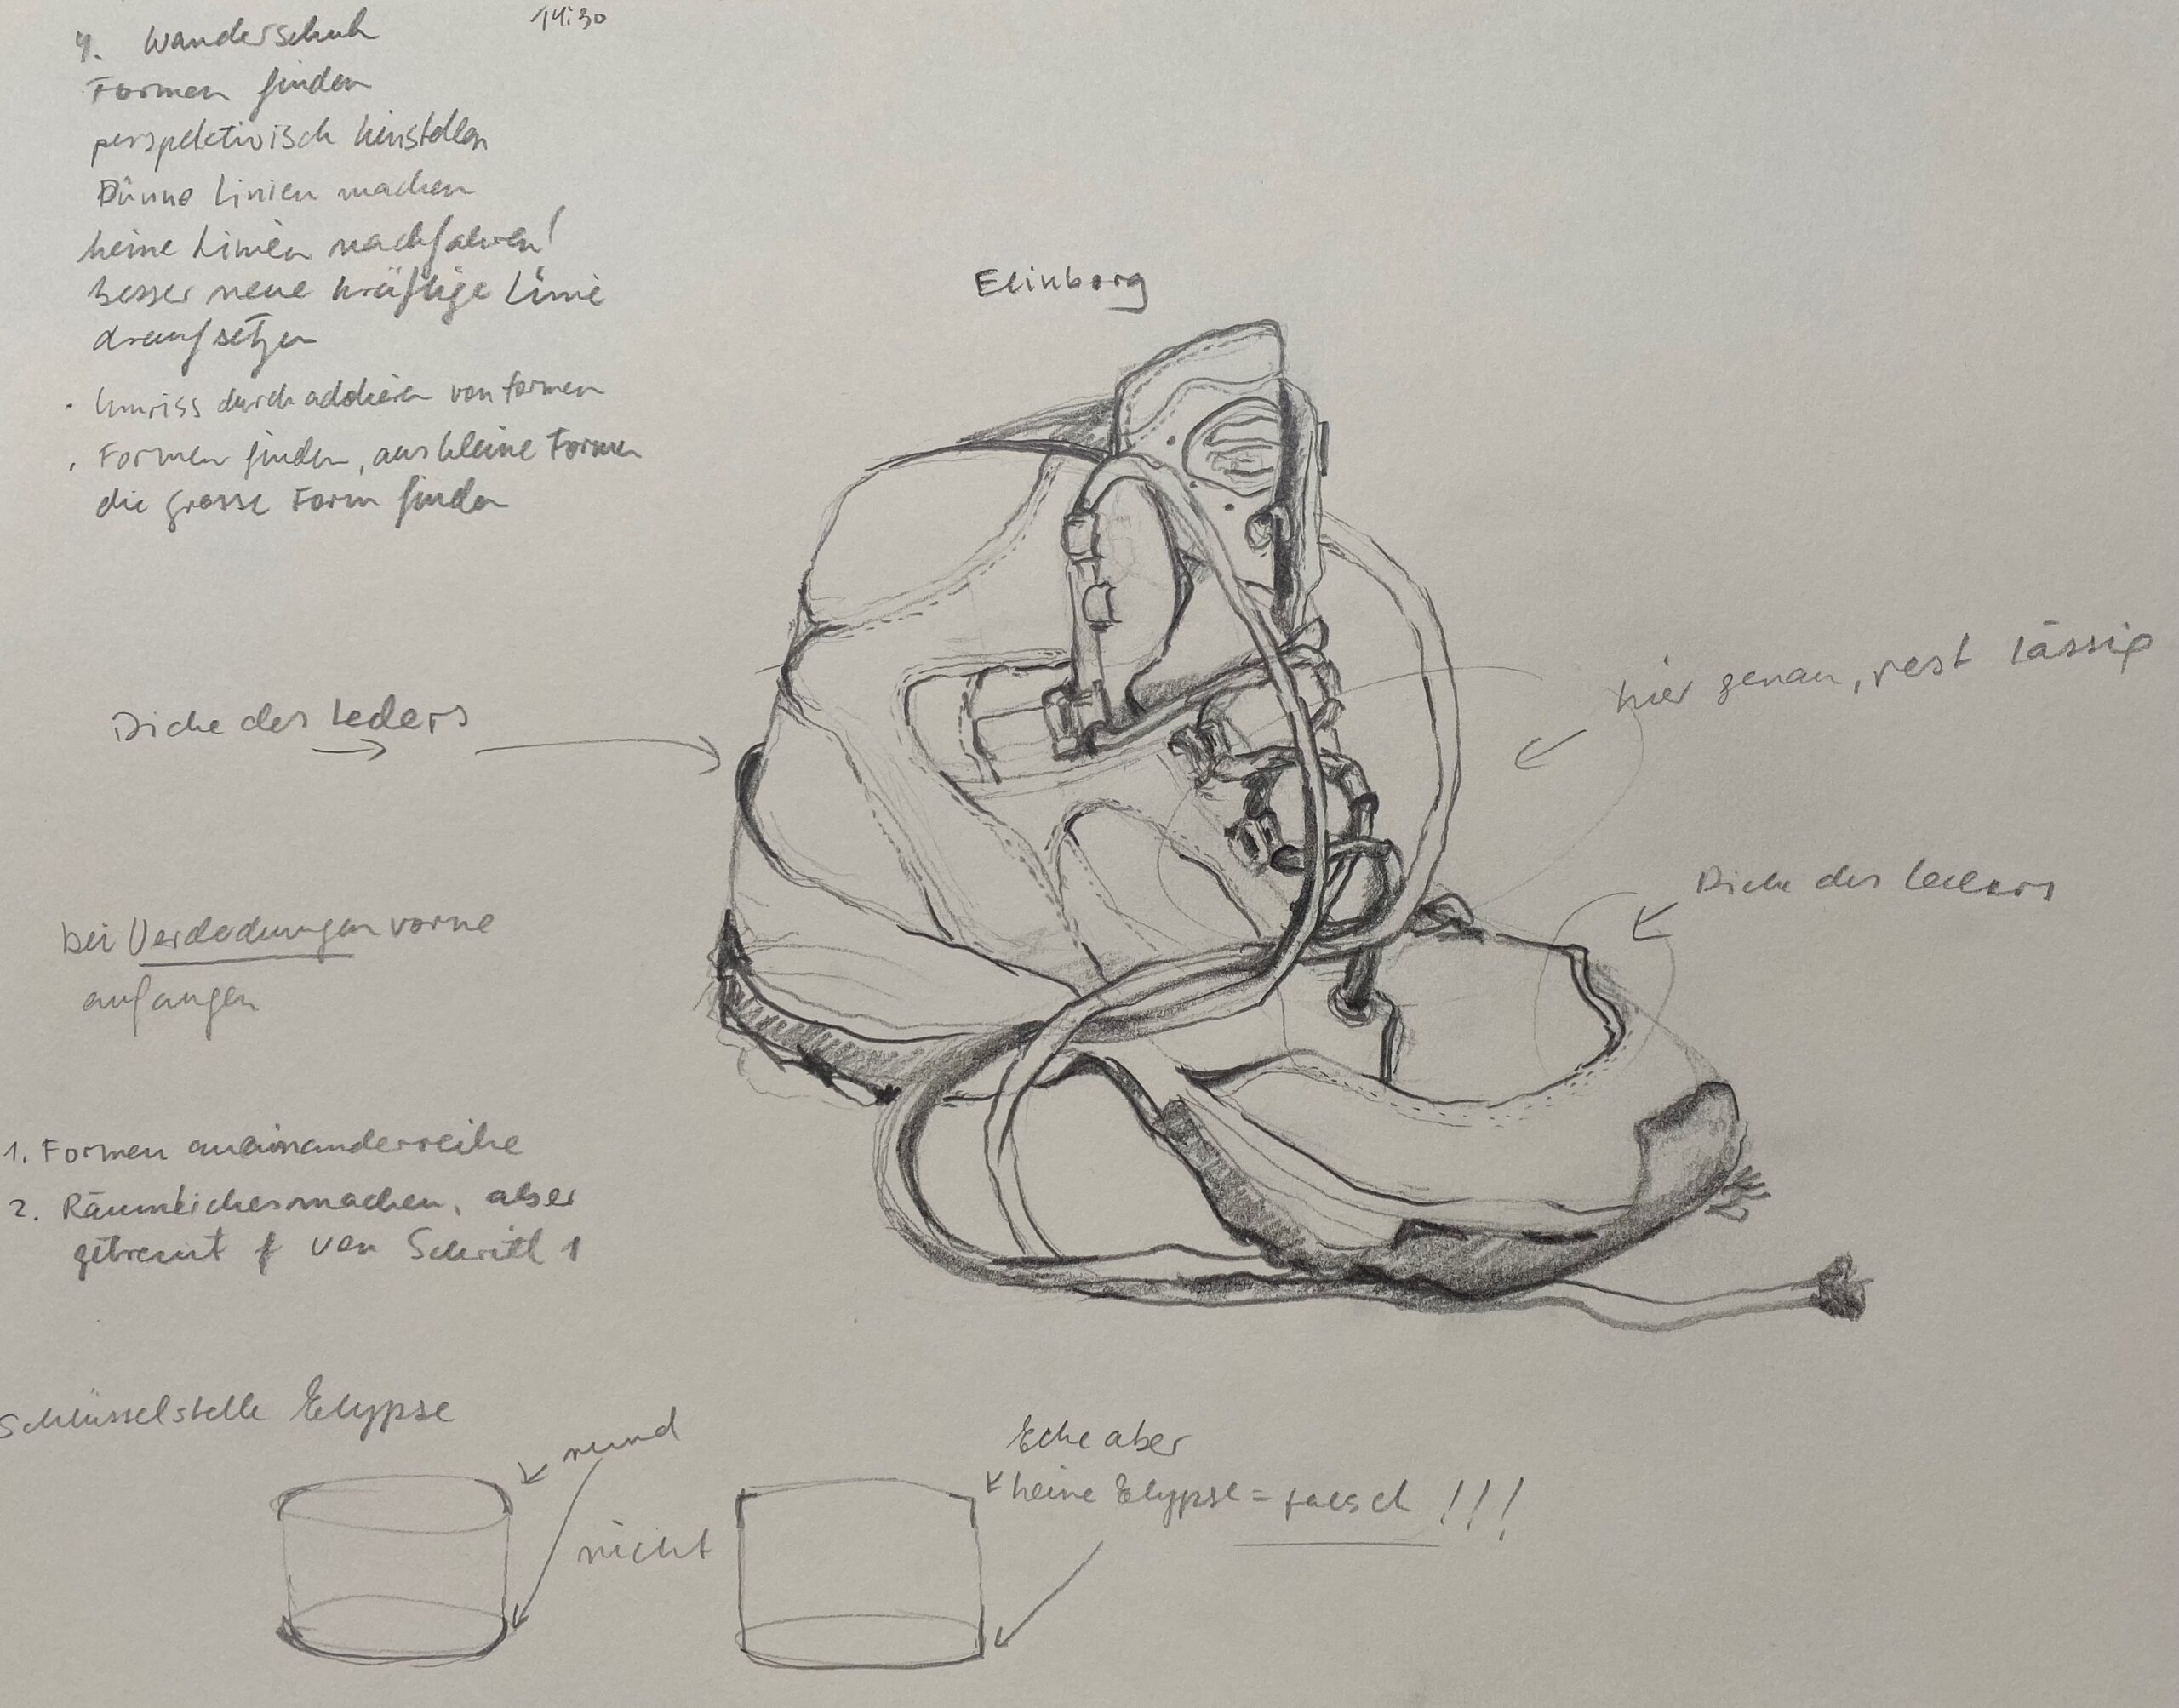 4. Wanderschuh 14:30
Formen finden
perspektivisch hinstellen
Dünne Linien machen
keine Linien nachfahren!
besser neue kräftige Linie
draufsetzen
· Umriss durch addieren von Formen
· Formen finden, aus kleine Formen
die grosse Form finden
Elinborg
hier genau, rest lässig
Dicke des Leders
Dicke des Leders
bei Verdeckungen vorne
anfangen
1. Formen aneinanderreihe
2. Räumliches machen, aber
getrennt von Schritt 1
Schlüsselstelle Elypse
rund
nicht
Ecke aber
keine Elypse = falsch !!!